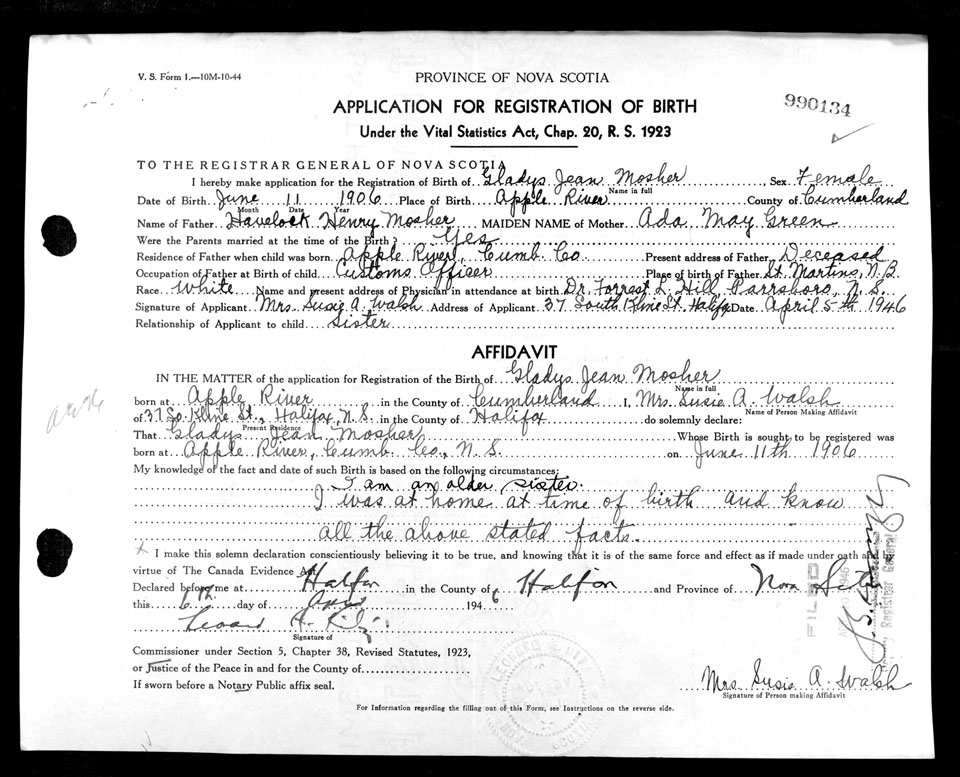 V. S. Form 1.—10M-10-44
PROVINCE OF NOVA SCOTIA
990134
APPLICATION FOR REGISTRATION OF BIRTH
Under the Vital Statistics Act, Chap. 20, R. S. 1923
TO THE REGISTRAR GENERAL OF NOVA SCOTIA
I hereby make application for the Registration of Birth of Gladys Jean Mosher Sex Female
Name in full
Date of Birth June 11 1906 Place of Birth Apple River County of Cumberland
Month Date Year
Name of Father Havelock Henry Mosher MAIDEN NAME of Mother Ada May Green
Were the Parents married at the time of the Birth? Yes
Residence of Father when child was born Apple River, Cumb. Co. Present address of Father Deceased
Occupation of Father at Birth of child Customs Officer Place of birth of Father St. Martins, N.B.
Race White Name and present address of Physician in attendance at birth Dr. Forrest L. Hill, Parrsboro, N.S.
Signature of Applicant Mrs. Susie A. Walsh Address of Applicant 37 South Kline St. Halifax Date April 5th 1946
Relationship of Applicant to child Sister
AFFIDAVIT
IN THE MATTER of the application for Registration of the Birth of Gladys Jean Mosher
Name in full
born at Apple River in the County of Cumberland I, Mrs. Susie A. Walsh
Name of Person Making Affidavit
of 37 So. Kline St., Halifax, N.S. in the County of Halifax do solemnly declare:
Present Residence
That Gladys Jean Mosher Whose Birth is sought to be registered was
born at Apple River, Cumb. Co., N.S. on June 11th 1906
My knowledge of the fact and date of such Birth is based on the following circumstances:
I am an older sister.
I was at home at time of birth and know
all the above stated facts.
I make this solemn declaration conscientiously believing it to be true, and knowing that it is of the same force and effect as if made under oath and by
virtue of The Canada Evidence Act.
Declared before me at Halifax in the County of Halifax and Province of Nova Scotia
this 6th day of April 1946
Signature of
Commissioner under Section 5, Chapter 38, Revised Statutes, 1923,
or Justice of the Peace in and for the County of
If sworn before a Notary Public affix seal.
FILED
Registrar General
Mrs Susie A. Walsh
Signature of Person making Affidavit
For Information regarding the filling out of this Form, see Instructions on the reverse side.